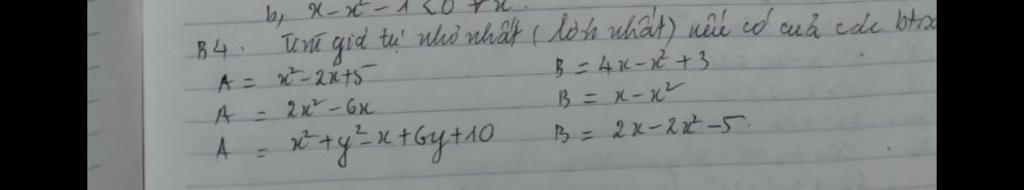 b, x - x² - 1 < 0 ∀ x.
B4. Tìm giá trị nhỏ nhất (lớn nhất) nếu có của các btsx
A = x² - 2x + 5 B = 4x - x² + 3
A = 2x² - 6x B = x - x²
A = x² + y² - x + 6y + 10 B = 2x - 2x² - 5.